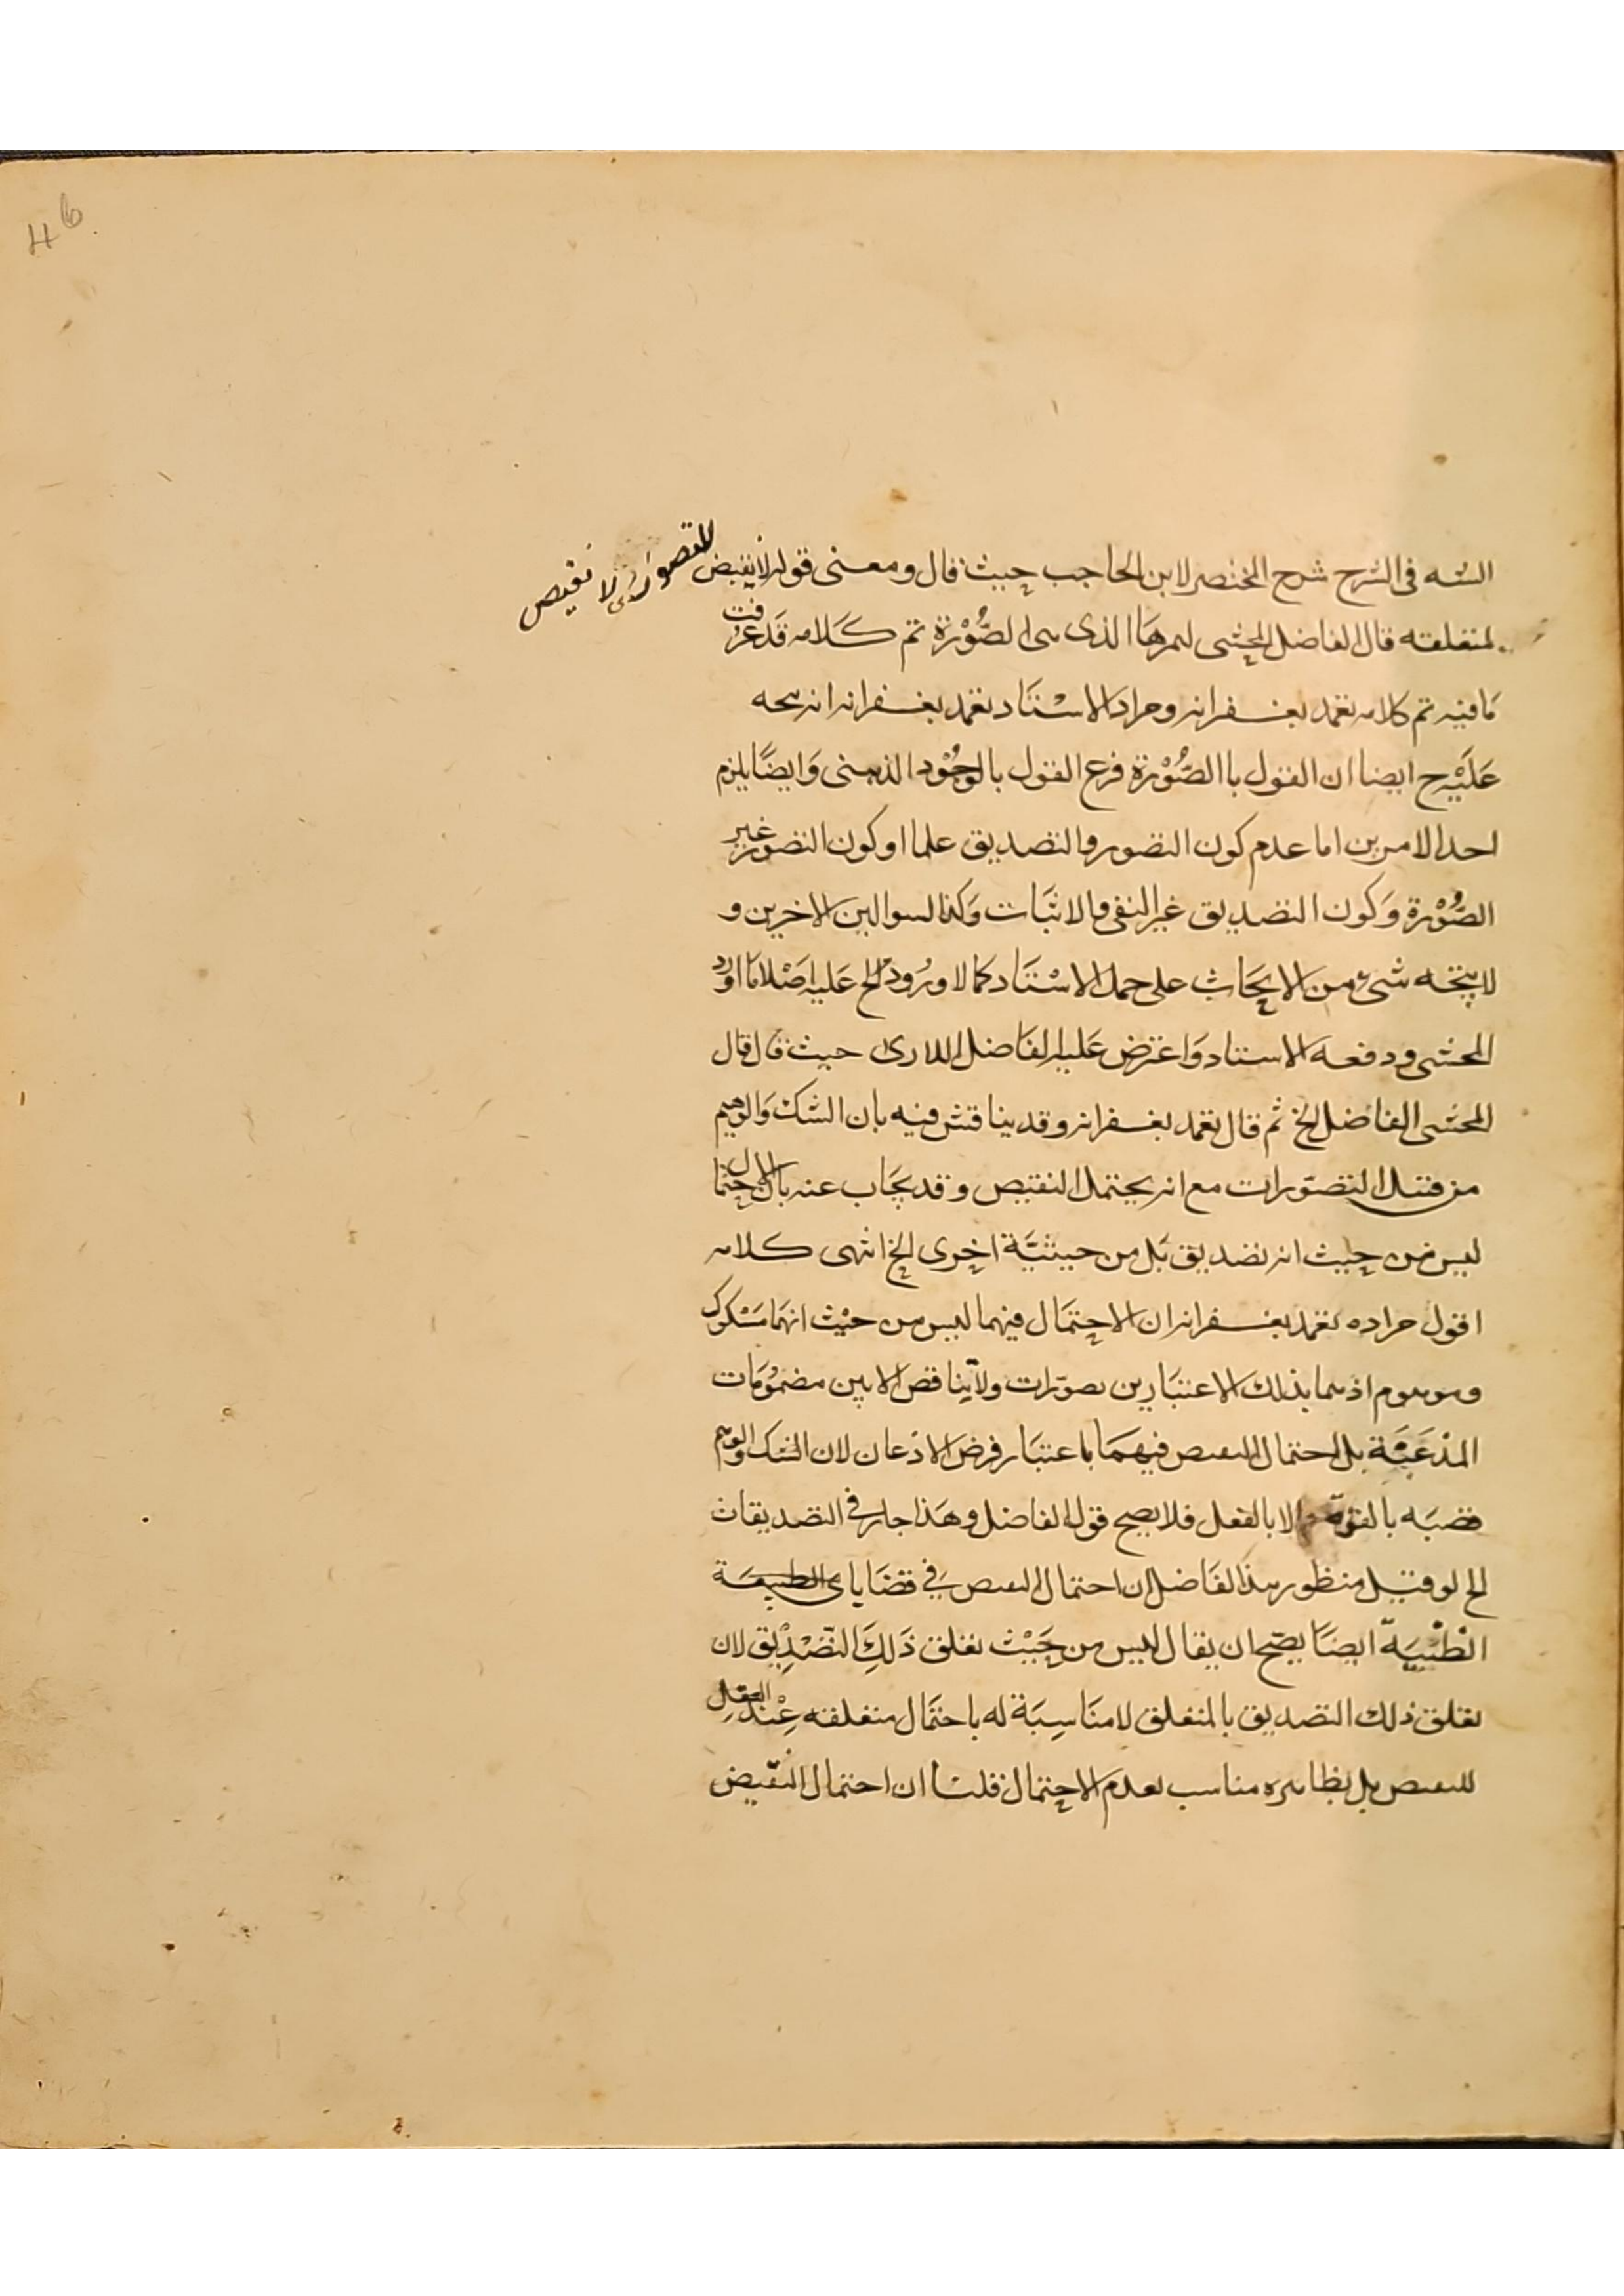 4b
السه فى الشرح شرح المختصر لابن الحاجب حيث قال ومعنى قوله لا نقيض للتصور اى لا نقيض
لمتعلقه قال الفاضل المحشى الذى هى الصُّوْرَة تم كلامه قد عرفت
مَا فيه تم كلامه تغمد بغفرانه ومراد الاسْتَاد تغمد بغفرانه انه
عَلَيْه ح ايضا ان القول باالصُّوْرَة فرع القول بالوُجُوْد الذهنى وَايضًا يلزم
احد الامرين اما عدم كون التصور والتصديق علما او كون التصور غير
الصُّوْرَة وَكون التصديق غير النفى والاثبَات وَكذا السوالين الاخرين و
لا يتجه شئ من الابحَاث على حمل الاسْتَاد كما لا وُرُود الخ عَليه اصْلا مَا اورد
المحشى ودفعه الاستاد وَاعترض عَليه الفَاضل اللارى حيث قال قال
المحشى الفاضل الخ ثم قال تغمد بغفرانه وقد يناقش فيه بان الشك وَالوهم
من قبيل التصوّرات مع انه يحتمل النقيض وقد يجَاب عنه بان الاحتمال
ليس من حيث انه تصديق بَل من حيثيَّة اخرى الخ انتهى كلامه
اقول مراده تغمد بغفرانه ان الاحتمَال فيهما ليس من حيْث انهمَا مَشكوك
وموهوم اذ هما بذلك الاعتبَارين تصوّرات ولا يّناقض الا بين مضمُومَات
المذعَنَة بل احتمال النقيض فيهمَا باعتبَار فرض الاذعان لان الشك والوهم
قضيَه بالقوّة لا بالفعل فلا يصح قول الفاضل وهَذا جار فى التصديقات
الخ لو قيل منظور هذا الفَاضل ان احتمال النقيض فِي قضَايا
الظنّيَة ايضًا يصّح ان يقال ليس من حَيْث تعلق ذَلِكَ التصْدِيق لان
تعلق ذلك التصديق بالمتعلق لا مناسِبَة له باحتمَال متعلقه عِنْد العقل
للنقيض بل بظاهره مناسب بعدم الاحتمال قلنا ان احتمال النّقيض